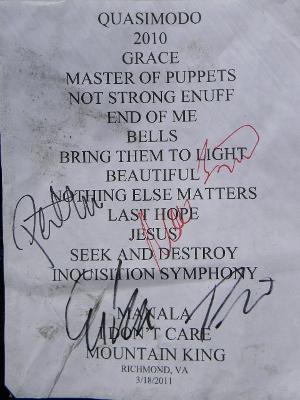 QUASIMODO
2010
GRACE
MASTER OF PUPPETS
NOT STRONG ENUFF
END OF ME
BELLS
BRING THEM TO LIGHT
BEAUTIFUL
NOTHING ELSE MATTERS
LAST HOPE
JESUS
SEEK AND DESTROY
INQUISITION SYMPHONY
MANALA
I DON'T CARE
MOUNTAIN KING
RICHMOND, VA
3/18/2011